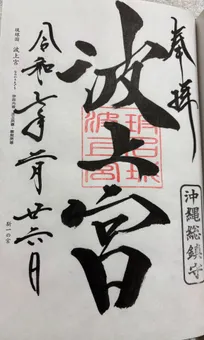 奉拝
沖縄総鎮守
波上宮
令和七年二月廿六日
琉球国 波上宮
新一の宮